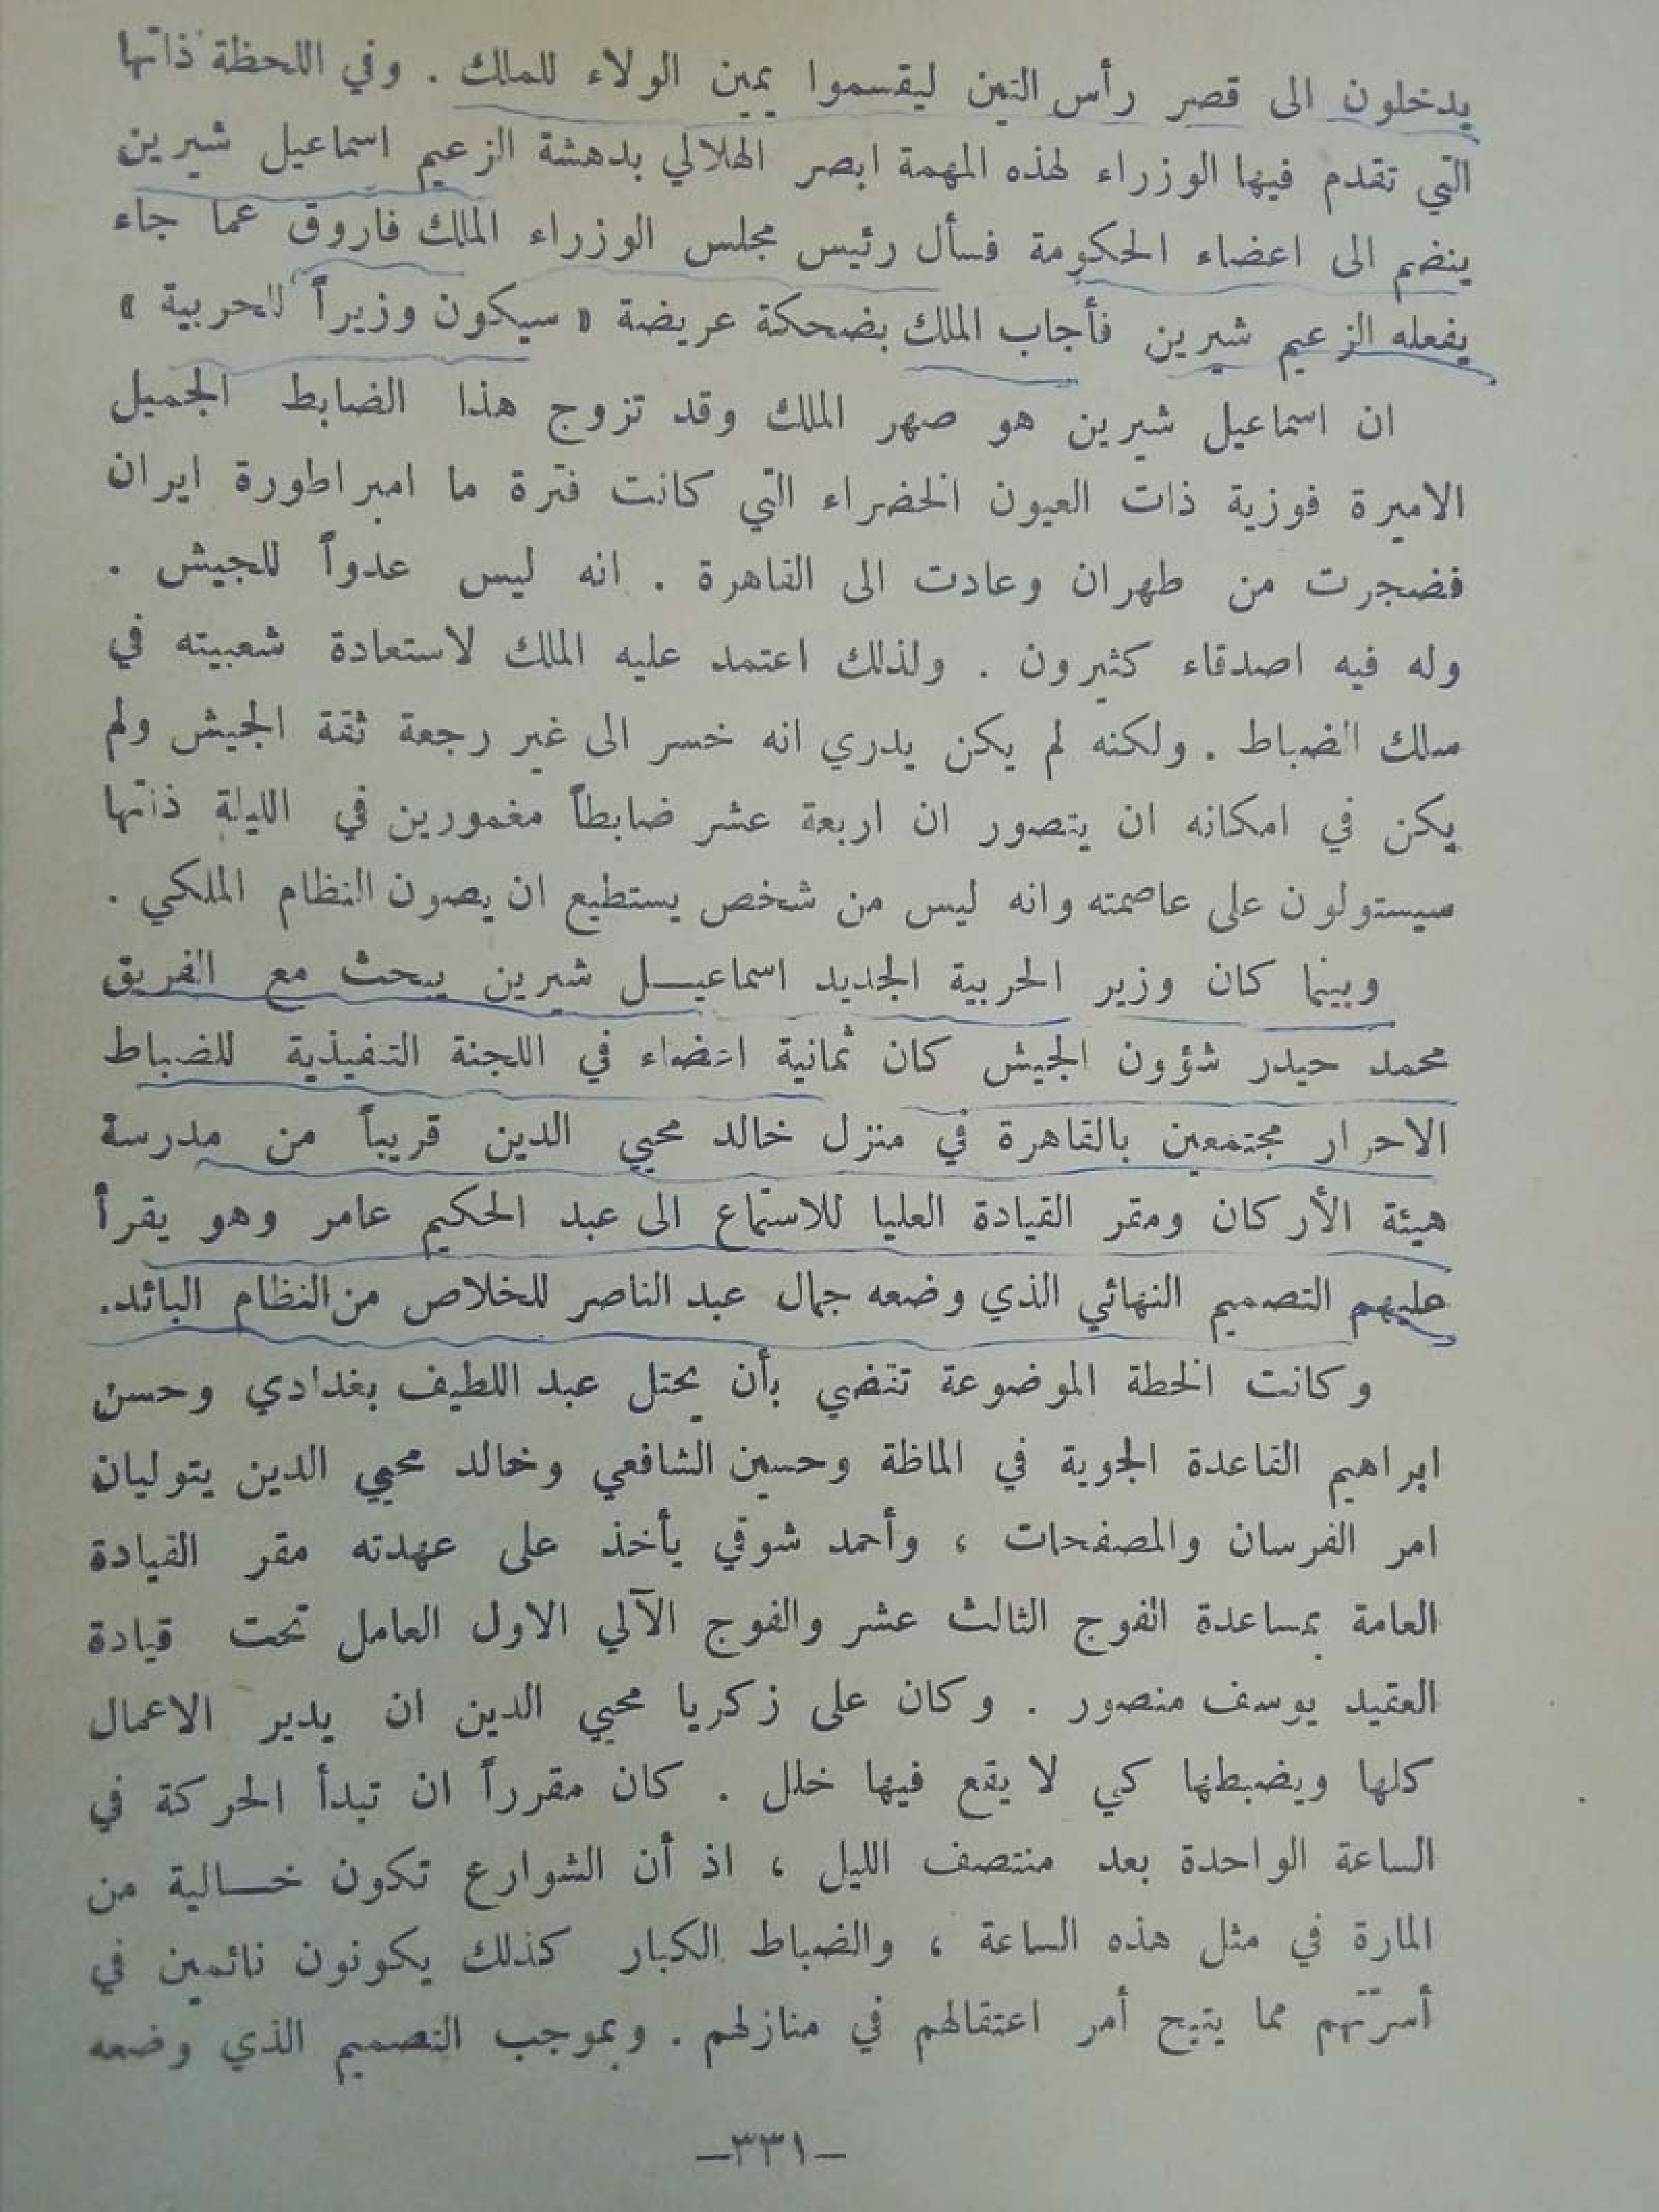 يدخلون الى قصر رأس التين ليقسموا يمين الولاء للملك . وفي اللحظة ذاتها
التي تقدم فيها الوزراء لهذه المهمة ابصر الهلالي بدهشة الزعيم اسماعيل شيرين
ينضم الى اعضاء الحكومة فسأل رئيس مجلس الوزراء الملك فاروق عما جاء
يفعله الزعيم شيرين فأجاب الملك بضحكة عريضة « سيكون وزيراً للحربية »
ان اسماعيل شيرين هو صهر الملك وقد تزوج هذا الضابط الجميل
الاميرة فوزية ذات العيون الخضراء التي كانت فترة ما امبراطورة ايران
فضجرت من طهران وعادت الى القاهرة . انه ليس عدواً للجيش .
وله فيه اصدقاء كثيرون . ولذلك اعتمد عليه الملك لاستعادة شعبيته في
سلك الضباط . ولكنه لم يكن يدري انه خسر الى غير رجعة ثقة الجيش ولم
يكن في امكانه ان يتصور ان اربعة عشر ضابطاً مغمورين في الليلة ذاتها
سيستولون على عاصمته وانه ليس من شخص يستطيع ان يصون النظام الملكي .
وبينما كان وزير الحربية الجديد اسماعيـــل شيرين يبحث مع الفريق
محمد حيدر شؤون الجيش كان ثمانية اعضاء في اللجنة التنفيذية للضباط
الاحرار مجتمعين بالقاهرة في منزل خالد محيي الدين قريباً من مدرسة
هيئة الأركان ومقر القيادة العليا للاستماع الى عبد الحكيم عامر وهو يقرأ
عليهم التصميم النهائي الذي وضعه جمال عبد الناصر للخلاص من النظام البائد.
وكانت الخطة الموضوعة تقضي بأن يحتل عبد اللطيف بغدادي وحسن
ابراهيم القاعدة الجوية في الماظة وحسين الشافعي وخالد محيي الدين يتوليان
امر الفرسان والمصفحات ، وأحمد شوقي يأخذ على عهدته مقر القيادة
العامة بمساعدة الفوج الثالث عشر والفوج الآلي الاول العامل تحت قيادة
العقيد يوسف منصور . وكان على زكريا محيي الدين ان يدير الاعمال
كلها ويضبطها كي لا يقع فيها خلل . كان مقرراً ان تبدأ الحركة في
الساعة الواحدة بعد منتصف الليل ، اذ أن الشوارع تكون خـــالية من
المارة في مثل هذه الساعة ، والضباط الكبار كذلك يكونون نائمين في
أسرّتهم مما يتيح أمر اعتقالهم في منازلهم . وبموجب التصميم الذي وضعه
–٣٣١–